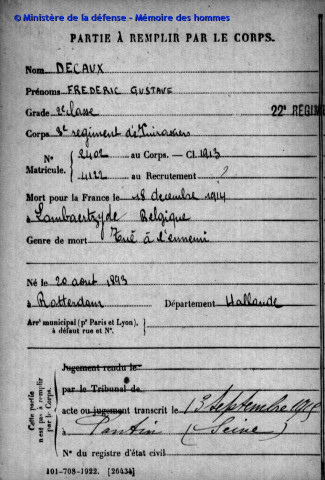 © Ministère de la défense - Mémoire des hommes
PARTIE À REMPLIR PAR LE CORPS.
Nom DECAUX
Prénoms FREDERIC GUSTAVE
Grade 2e classe
22e REGIME
Corps 8e regiment de Cuirassiers
N° 2402 au Corps. — Cl. 1913
Matricule. 4122 au Recrutement ?
Mort pour la France le 18 decembre 1914
à Lombaertzyde Belgique
Genre de mort Tué à l'ennemi
Né le 20 aout 1893
à Rotterdam Département Hollande
Arrt municipal (pr Paris et Lyon),
à défaut rue et N°.
Cette partie
n'est pas à remplir
par le Corps.
Jugement rendu le
par le Tribunal de
acte ou jugement transcrit le 1er Septembre 1915
à Pantin (Seine)
N° du registre d'état civil
101-708-1922. [26434]